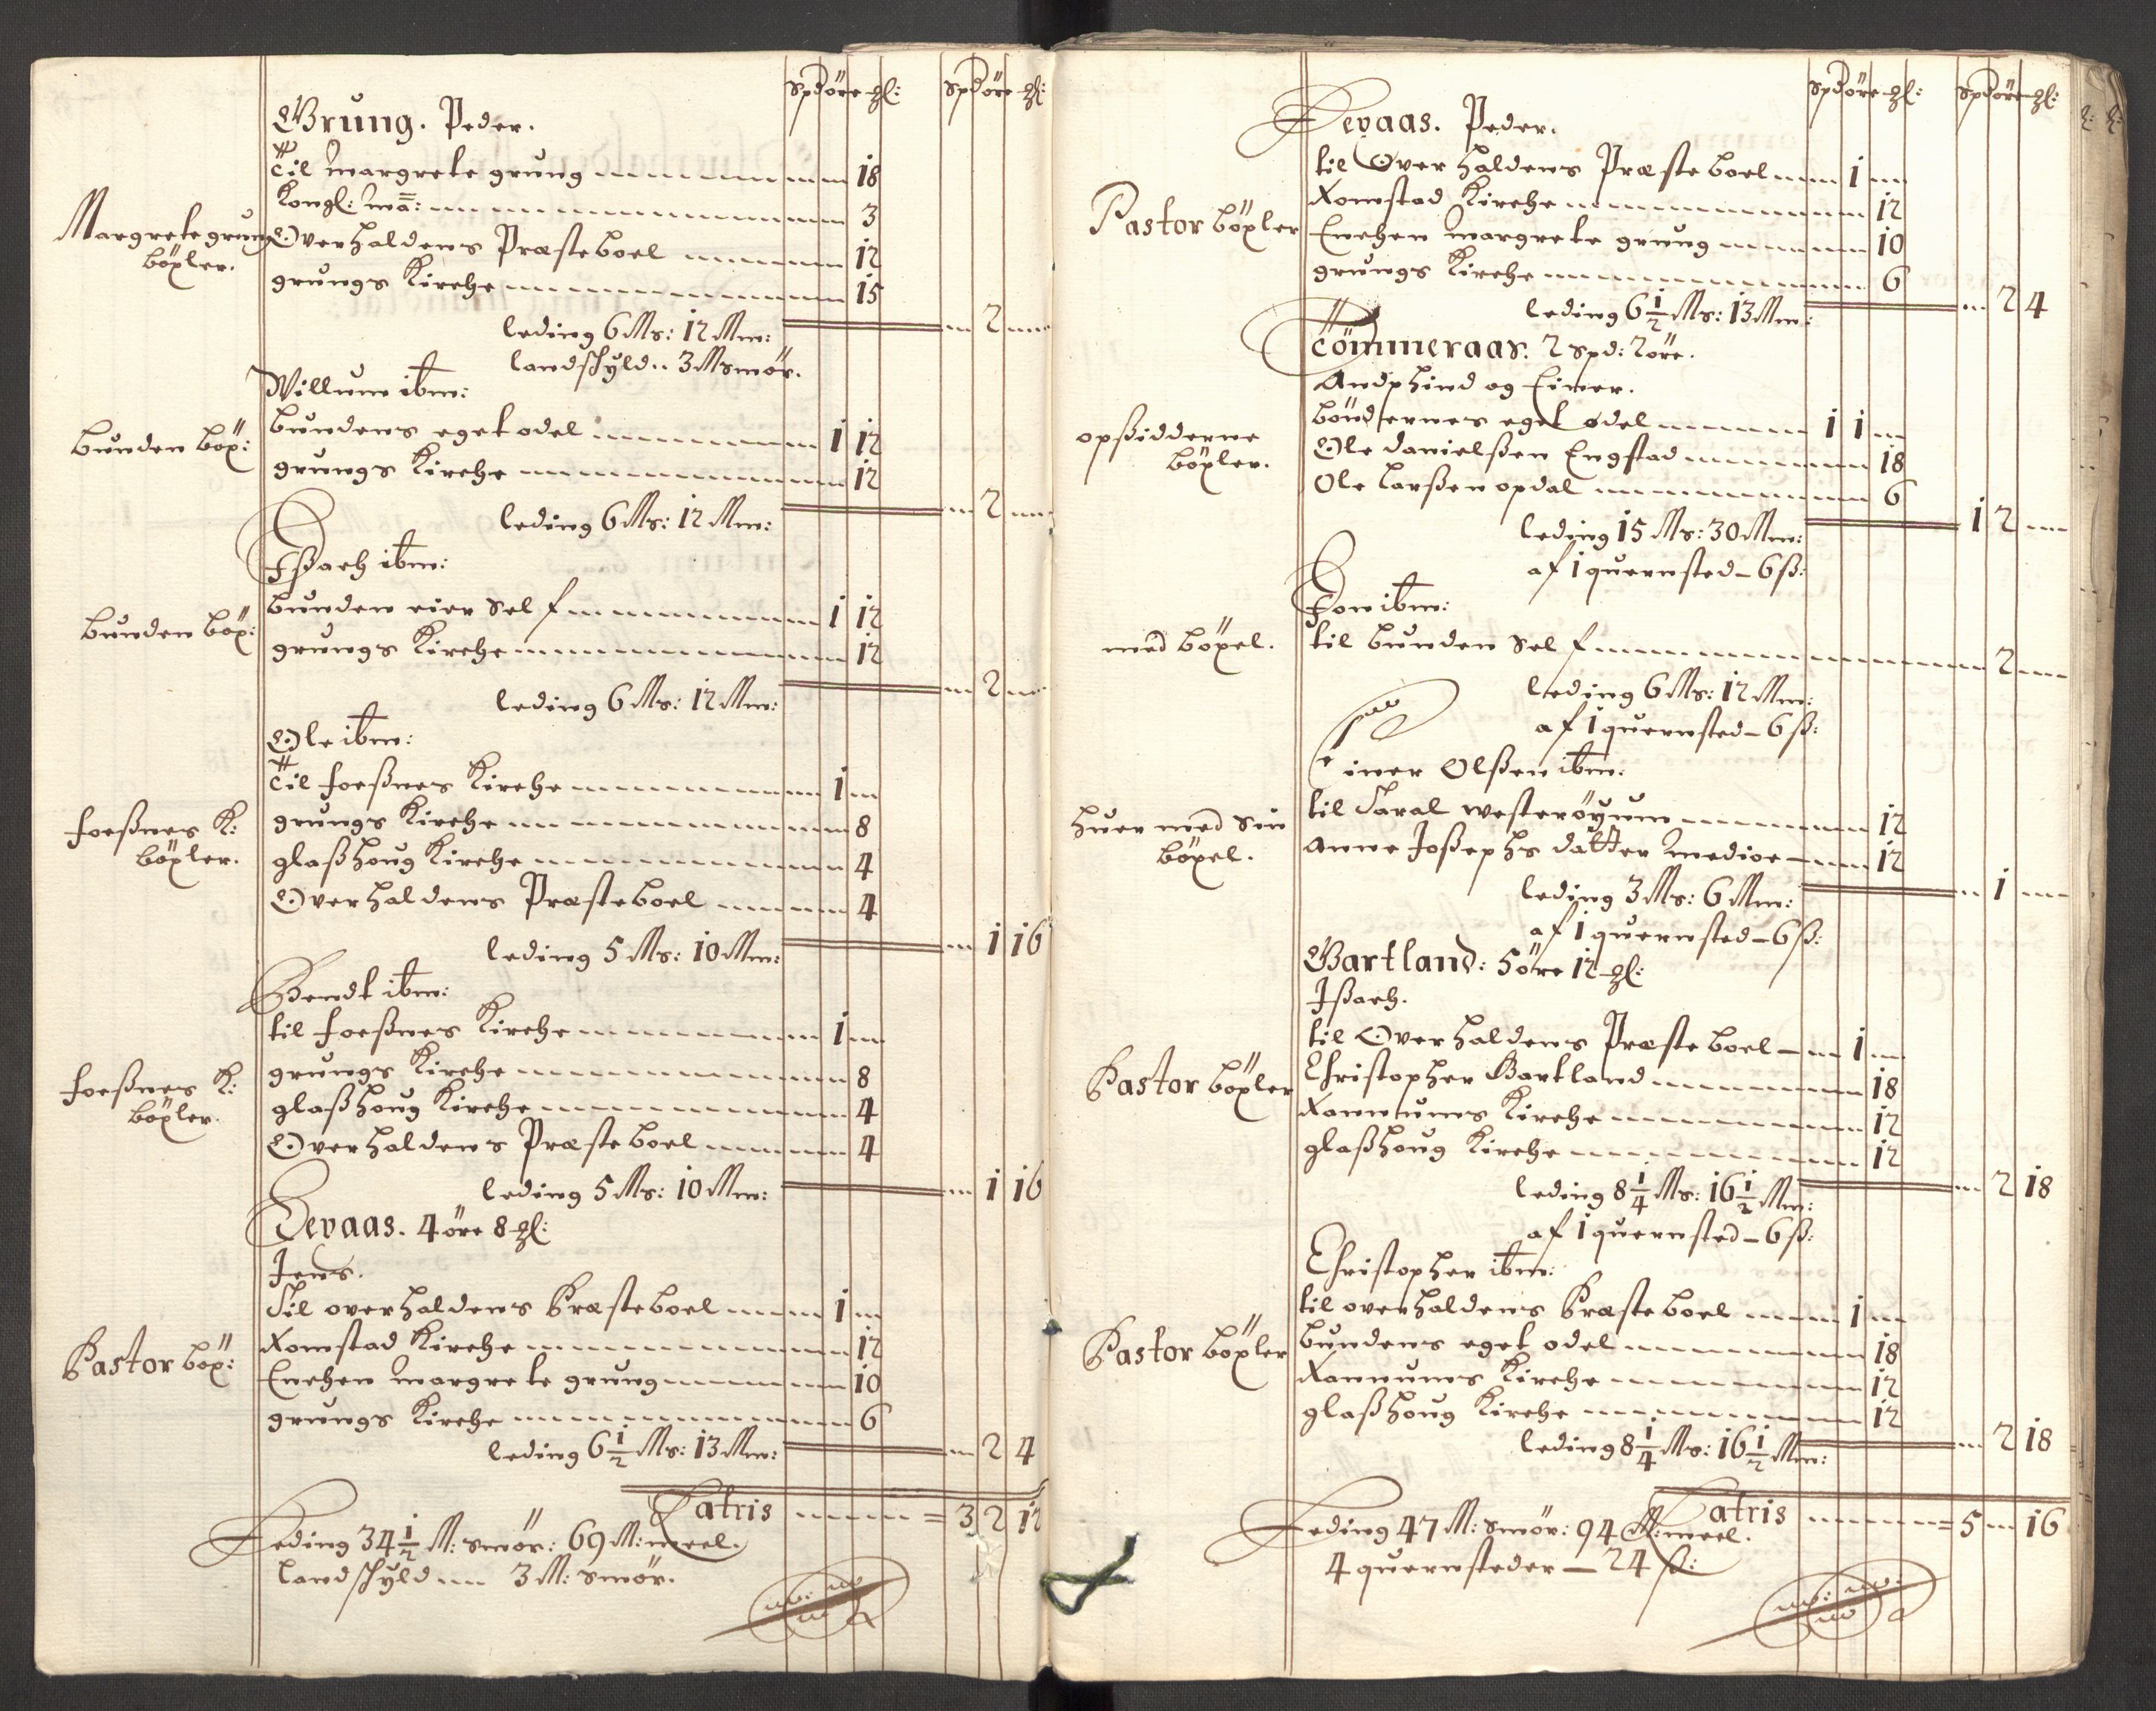 spd öre ℊl: spd öre ℊl:
Grung. Peder.
Til Margrete grung 18
Kongl: Ma: 3
Margrete grung Overhaldens Præsteboel 12
böxler.
grungs Kirche 15
leding 6 Ms: 12 Mm: 2
landschyld .. 3 M smör.
Willum ibm:
Bunden böx: bundens eget odel 1 12
grungs Kirche 12
leding 6 Ms: 12 Mm: 2
Jssach ibm:
Bunden böx: bunden eier self 1 12
grungs Kirche 12
leding 6 Ms: 12 Mm: 2
Ole ibm:
Til foessnes Kirche 1
foessnes K: grungs Kirche 8
böxler. glasshoug Kirche 4
Overhaldens Præsteboel 4
leding 5 Ms: 10 Mm: 1 16
Bendt ibm:
til foessnes Kirche 1
foessnes K: grungs Kirche 8
böxler. glasshoug Kirche 4
Overhaldens Præsteboel 4
leding 5 Ms: 10 Mm: 1 16
Devaas. 4 öre 8 ℊl:
Jens.
Til overhaldens Præsteboel 1
Pastor böx: Romstad Kirche 12
Enchen margrete grung 10
grungs Kirche 6
leding 6 1/2 Ms: 13 Mm: 2 4
Latris = 3 2 12
Leding 34 1/2 M: smör: 69 M: meel.
Landschyld 3 M: smör.
spd öre ℊl: spd öre ℊl:
Devaas. Peder.
til Overhaldens Præsteboel 1
Pastor böxler Romstad Kirche 12
Enchen margrete grung 10
grungs Kirche 6
leding 6 1/2 Ms: 13 Mm: 2 4
Tömmeraas. 2 spd: 2 öre.
Andphind og Einer.
opssidderne böndernes eget odel 1 1
böxler. Ole danielssen Engstad 18
Ole Larssen opdal 6
leding 15 Ms: 30 Mm: 1 2
af 1 quernsted - 6 ß:
Jon ibm:
med böxel. til bunden self 2
leding 6 Ms: 12 Mm:
af 1 quernsted - 6 ß:
Einer Olssen ibm:
huer med sin til Taral westeröyum 12
böxel. Anne Jossephs datter medioe 12
leding 3 Ms: 6 Mm: 1
af 1 quernsted - 6 ß:
Bartland: 5 öre 12 ℊl:
Jssach.
til Overhaldens Præsteboel 1
Pastor böxler Christopher Bartland 18
Rannums Kirche 12
glasshoug Kirche 12
leding 8 1/4 Ms: 16 1/2 Mm: 2 18
af 1 quernsted - 6 ß:
Christopher ibm:
til overhaldens Præsteboel 1
Pastor böxler bundens eget odel 18
Rannums Kirche 12
glasshoug Kirche 12
leding 8 1/4 Ms: 16 1/2 Mm: 2 18
Latris = 5 16
Leding 47 M: smör: 94 M: meel.
4 quernsteder - 24 ß: